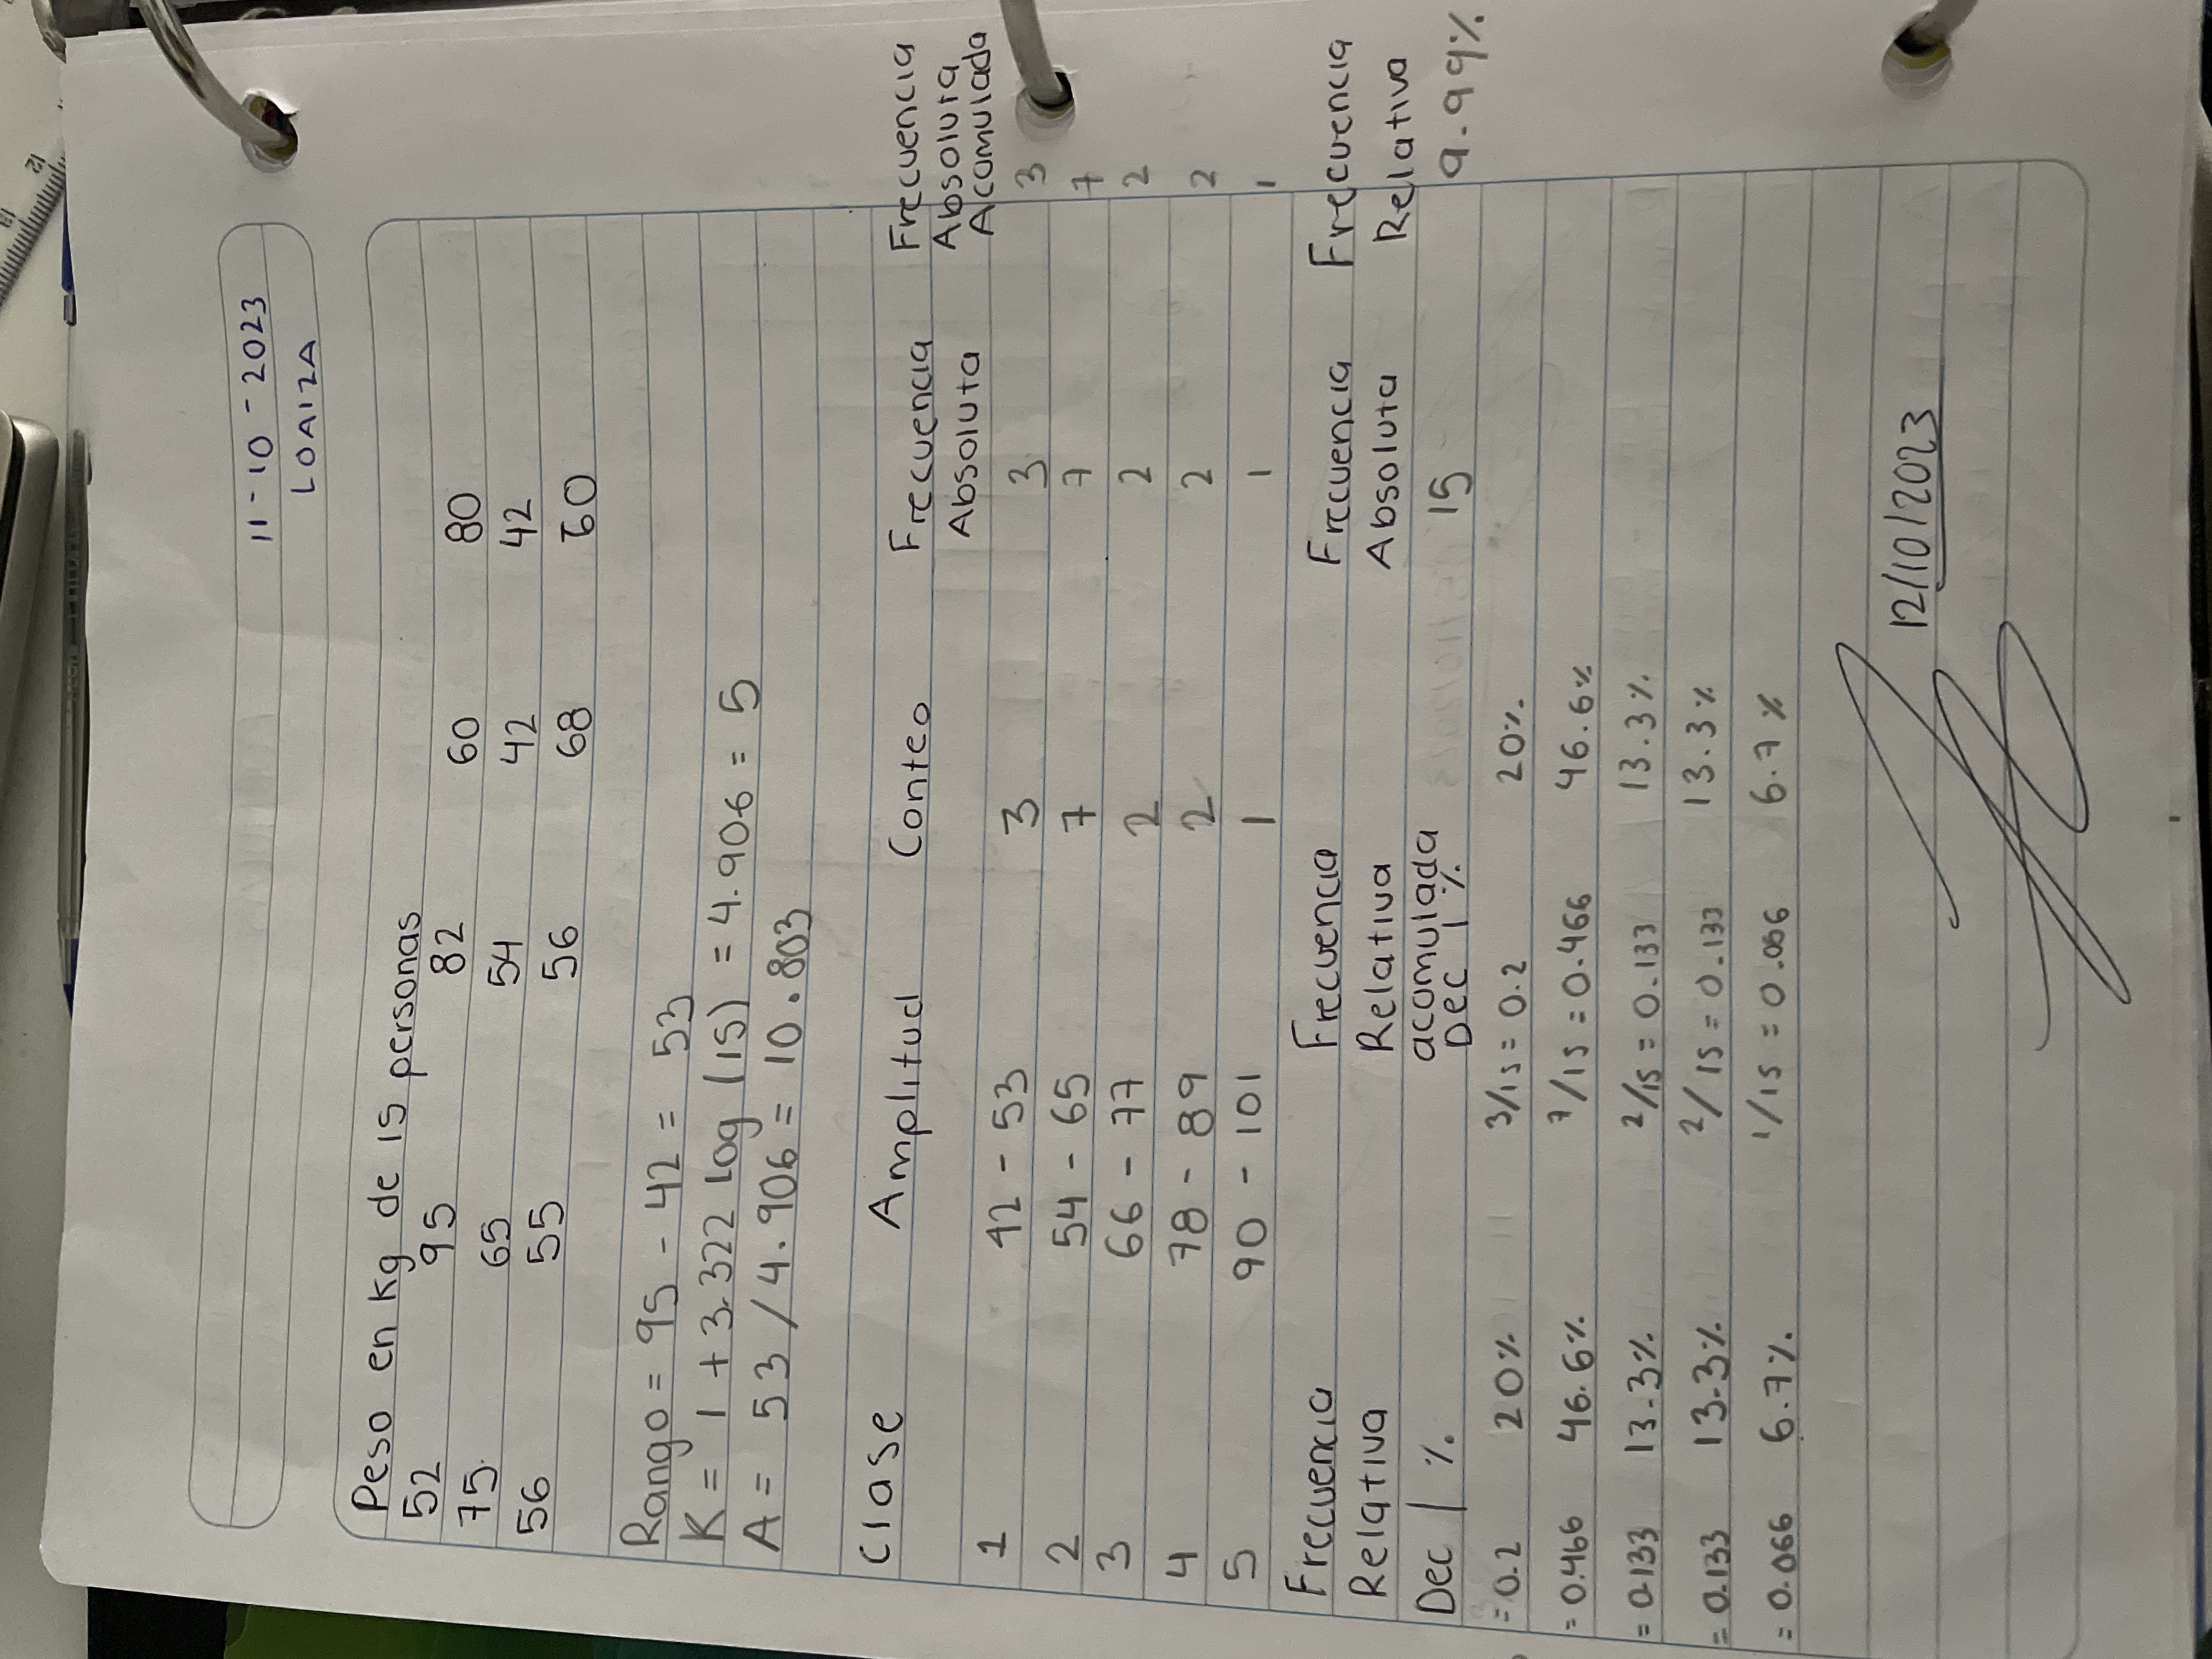 11-10-2023
LOAIZA
Peso en Kg de 15 personas
52 95 82 60 80
75 65 54 42 42
56 55 56 68 60
Rango = 95 - 42 = 53
K = 1 + 3.322 Log (15) = 4.906 = 5
A = 53 / 4.906 = 10.803
Clase Amplitud Conteo Frecuencia Absoluta Frecuencia Absoluta Acomulada
1 42 - 53 3 3 3
2 54 - 65 7 7 7
3 66 - 77 2 2 2
4 78 - 89 2 2 2
5 90 - 101 1 1 1
Frecuencia Frecuencia Frecuencia Frecuencia
Relativa Relativa Absoluta Relativa
Dec | % acomulada 15 9.99%
Dec | %
= 0.2 20% 3/15 = 0.2 20%
= 0.466 46.6% 7/15 = 0.466 46.6%
= 0.133 13.3% 2/15 = 0.133 13.3%
= 0.133 13.3% 2/15 = 0.133 13.3%
= 0.066 6.7% 1/15 = 0.066 6.7%
12/10/2023